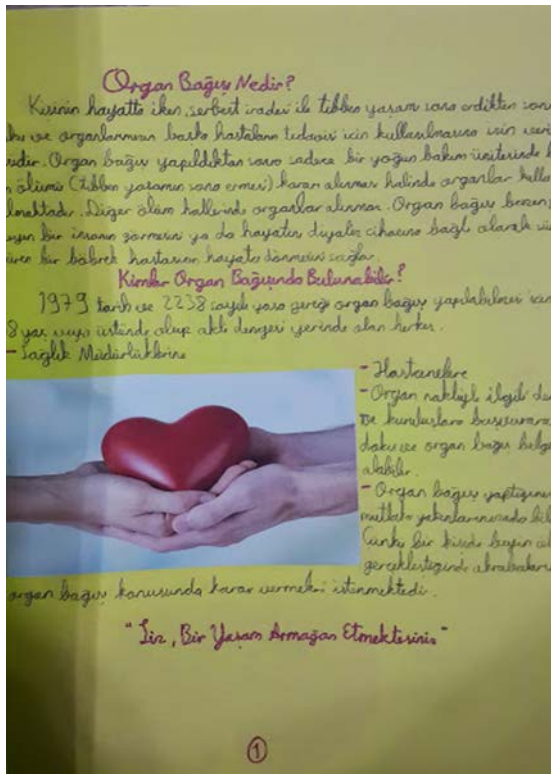 Organ Bağışı Nedir?
Kişinin hayatta iken, serbest iradesi ile tıbben yaşamı sona erdikten sonra
ku ve organlarının başka hastaların tedavisi için kullanılmasına izin ver
sidir. Organ bağışı yapıldıktan sonra sadece bir yoğun bakım ünitesinde
ölümü (tıbben yaşamın sona ermesi) kararı alınması halinde organlar kulla
lmaktadır. Diğer ölüm hallerinde organlar alınmaz. Organ bağışı bazen,
bir insanın görmesini ya da hayatını diyaliz cihazına bağlı olarak sü
üren bir böbrek hastasının hayata dönmesini sağlar.
Kimler Organ Bağışında Bulunabilir?
1979 tarih ve 2238 sayılı yasa gereği organ bağışı yapılabilmesi için
8 yaş veya üstünde olup akli dengesi yerinde olan herkes.
- Sağlık Müdürlüklerine
- Hastanelere
- Organ nakliyle ilgili de
ve kuruluşlara başvurara
doku ve organ bağış belge
alabilir.
- Organ bağışı yaptığınız
mutlaka yakınlarınızada bil
Çünkü bir kişide beyin
gerçekleştiğinde akrabaları
organ bağışı konusunda karar vermeleri istenmektedir.
"Siz, Bir Yaşam Armağan Etmektesiniz"
1